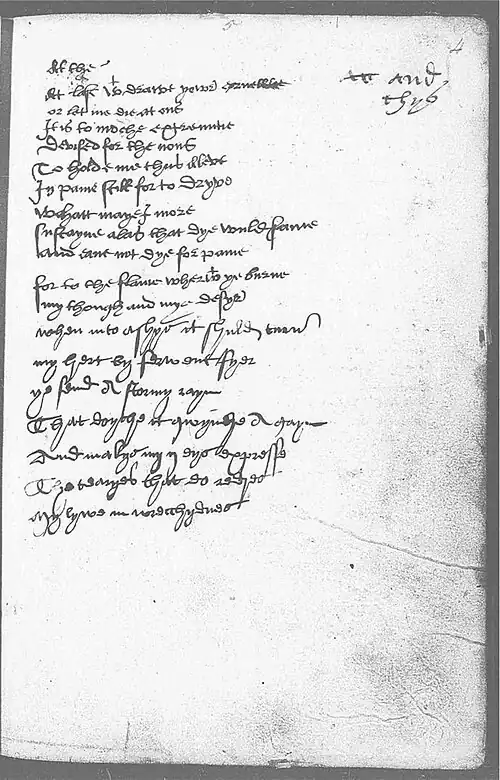 4
At the
At last wt drawe yowr crueltie
and
thys
or let me die at ons
It is to moche extremitie
Devised for the nons
To holde me thus alyve
In paine still for to dryve
What maye I more
sustayne alas that dye wuld faine
And cane not dye for paine
for to the flame wherwt ye burne
my though and mye desyr
when into ashys it shuld turn
my hert by fervent fyer
ye send A stormy rayn
That doythe it qwynche A gayn
And makys my n eys expresse
The tearys that do redres
my lyve in wrecchydnes